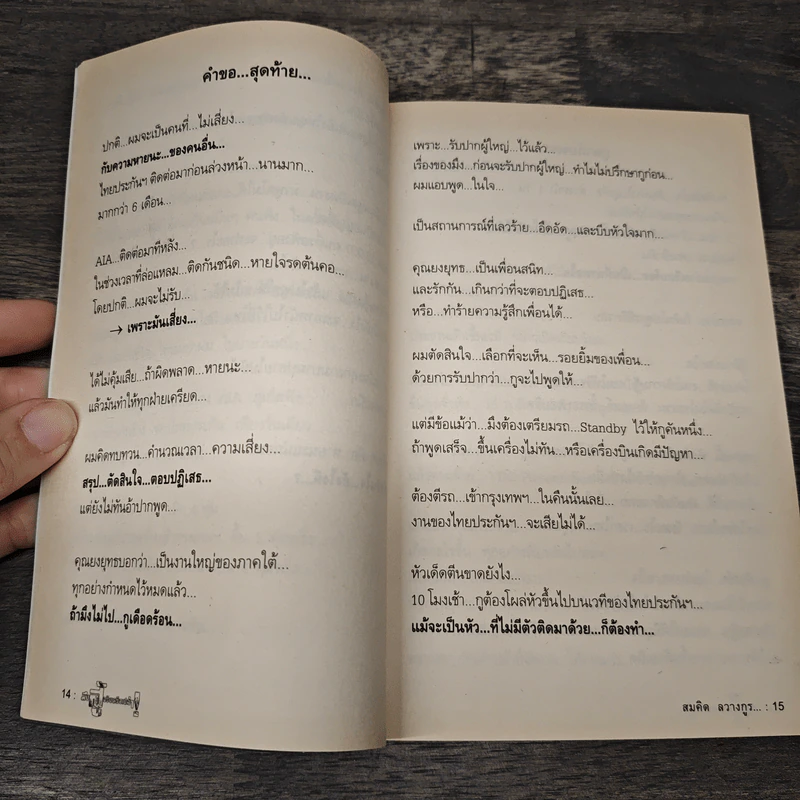 คำขอ...สุดท้าย...
ปกติ...ผมจะเป็นคนที่...ไม่เสี่ยง...
กับความหายนะ...ของคนอื่น...
ไทยประกันฯ ติดต่อมาก่อนล่วงหน้า...นานมาก...
มากกว่า 6 เดือน...
AIA...ติดต่อมาทีหลัง...
ในช่วงเวลาที่ล่อแหลม...ติดกันชนิด...หายใจรดต้นคอ...
โดยปกติ...ผมจะไม่รับ...
→ เพราะมันเสี่ยง...
ได้ไม่คุ้มเสีย...ถ้าผิดพลาด...หายนะ...
แล้วมันทำให้ทุกฝ่ายเครียด...
ผมคิดทบทวน...คำนวณเวลา...ความเสี่ยง...
สรุป...ตัดสินใจ...ตอบปฏิเสธ...
แต่ยังไม่ทันอ้าปากพูด...
คุณยงยุทธบอกว่า...เป็นงานใหญ่ของภาคใต้...
ทุกอย่างกำหนดไว้หมดแล้ว...
ถ้ามึงไม่ไป...กูเดือดร้อน...
14 :
เพราะ...รับปากผู้ใหญ่...ไว้แล้ว...
เรื่องของมึง...ก่อนจะรับปากผู้ใหญ่...ทำไมไม่ปรึกษากูก่อน...
ผมแอบพูด...ในใจ...
เป็นสถานการณ์ที่เลวร้าย...อึดอัด...และบีบหัวใจมาก...
คุณยงยุทธ...เป็นเพื่อนสนิท...
และรักกัน...เกินกว่าที่จะตอบปฏิเสธ...
หรือ...ทำร้ายความรู้สึกเพื่อนได้...
ผมตัดสินใจ...เลือกที่จะเห็น...รอยยิ้มของเพื่อน...
ด้วยการรับปากว่า...กูจะไปพูดให้...
แต่มีข้อแม้ว่า...มึงต้องเตรียมรถ...Standby ไว้ให้กูคันหนึ่ง...
ถ้าพูดเสร็จ...ขึ้นเครื่องไม่ทัน...หรือเครื่องบินเกิดมีปัญหา...
ต้องตีรถ...เข้ากรุงเทพฯ...ในคืนนั้นเลย...
งานของไทยประกันฯ...จะเสียไม่ได้...
หัวเด็ดตีนขาดยังไง...
10 โมงเช้า...กูต้องโผล่หัวขึ้นไปบนเวทีของไทยประกันฯ...
แม้จะเป็นหัว...ที่ไม่มีตัวติดมาด้วย...ก็ต้องทำ...
สมคิด ลวางกูร... : 15